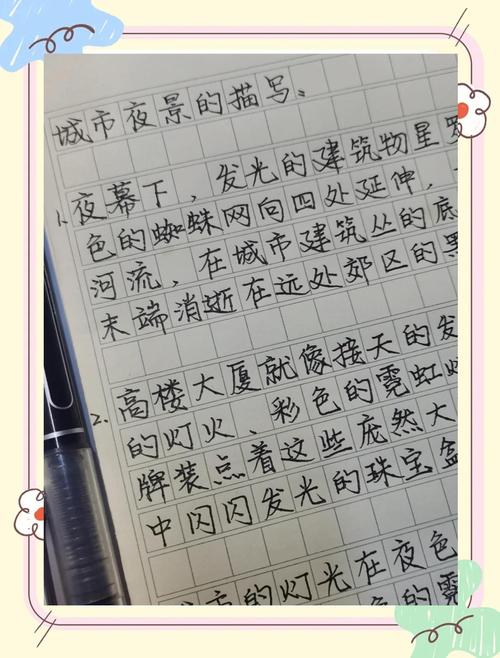 城市夜景的描写、
1. 夜幕下，发光的建筑物星罗
色的蜘蛛网向四处延伸，
河流，在城市建筑丛的底
末端消逝在远处郊区的黑
2. 高楼大厦就像接天的发
的灯火、彩色的霓虹灯
牌装点着这些庞然大
中闪闪发光的珠宝盒
城市的灯光在夜色
色的霓